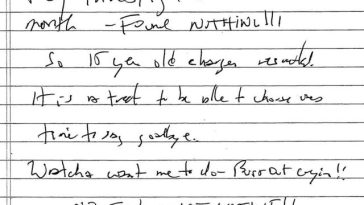 month - Found NOTHING!!!
So 15 year old charges resulted.
It is a treat to be able to choose ones
time to say goodbye.
Watcha want me to do - Burst out cryin!!
NOTHING!!